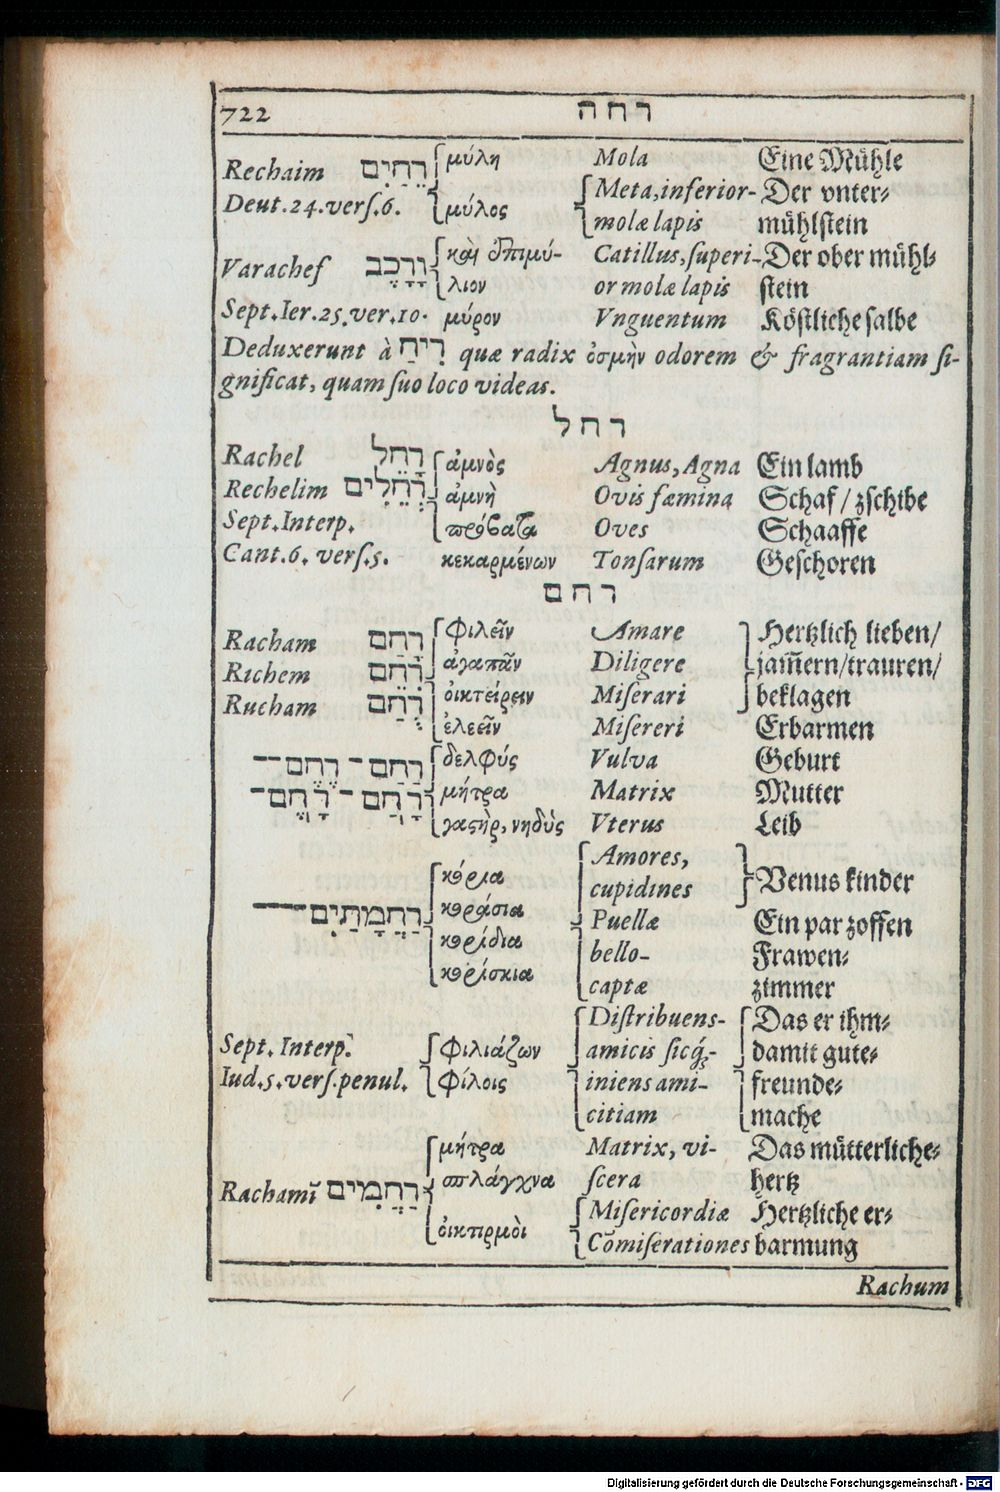 722 רחה
Rechaim רֵחַיִם μύλη Mola Eine Mühle
Deut.24.verſ.6. μύλος Meta,inferior- Der vnter⸗
molæ lapis mühlſtein
Varacheſ וָרָכֶב καὶ ἐπιμύ- Catillus,ſuperi- Der ober mühl⸗
λιον or molæ lapis ſtein
Sept.Ier.25.ver.10. μύρον Vnguentum Köſtliche ſalbe
Deduxerunt à רִיחַ quæ radix ὀσμὴν odorem & fragrantiam ſi-
gnificat, quam ſuo loco videas.
רחל
Rachel רָחֵל ἀμνὸς Agnus, Agna Ein lamb
Rechelim רְחֵלִים ἀμνὴ Ovis fæmina Schaf / zſchibe
Sept.Interp. πρόβατα Oves Schaaffe
Cant.6. verſ.5. κεκαρμένων Tonſarum Geſchoren
רחם
Racham רָחַם φιλεῖν Amare Hertzlich lieben/
Richem רִחֵם ἀγαπᾶν Diligere jam̄ern/trauren/
Rucham רֻחַם οἰκτείρειν Miſerari beklagen
ἐλεεῖν Miſereri Erbarmen
רַחַם - רֶחֶם -- δελφύς Vulva Geburt
רָחַם - רָחֶם - μήτρα Matrix Mutter
γαστὴρ, νηδὺς Vterus Leib
Amores,
κόρια cupidines Venus kinder
רַחֲמָתַיִם --- κοράσια Puellæ Ein par zoffen
κορίδια bello- Frawen⸗
κορίσκια captæ zimmer
Diſtribuens- Das er ihm⸗
Sept. Interp. φιλιάζων amicis ſicq́;- damit gute⸗
Iud.5.verſ.penul. φίλοις iniens ami- freunde⸗
citiam mache
μήτρα Matrix, vi- Das mütterliche⸗
Rachamĩ רַחֲמִים σπλάγχνα ſcera hertz
Miſericordiæ Hertzliche er⸗
οἰκτιρμοὶ Cõmiſerationes barmung
Rachum
Digitalisierung gefördert durch die Deutsche Forschungsgemeinschaft - DFG